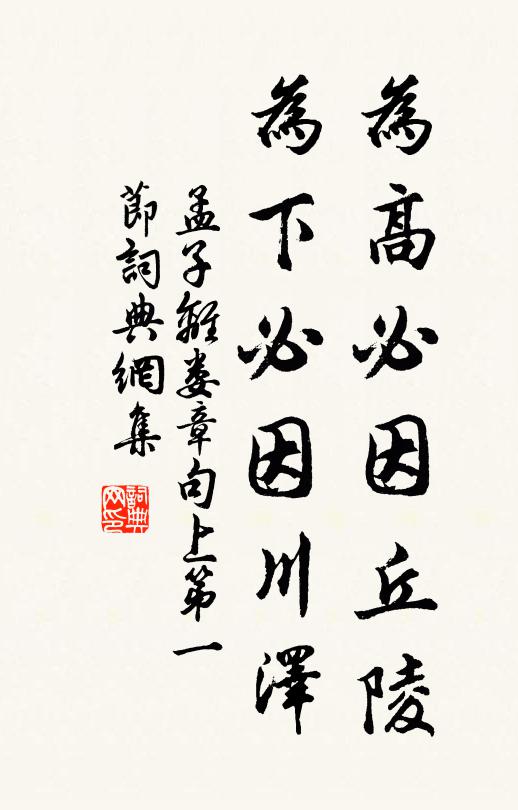 為高必因丘陵
為下必因川澤
孟子離娄章句上第一
節詞典網集
詞典
网印